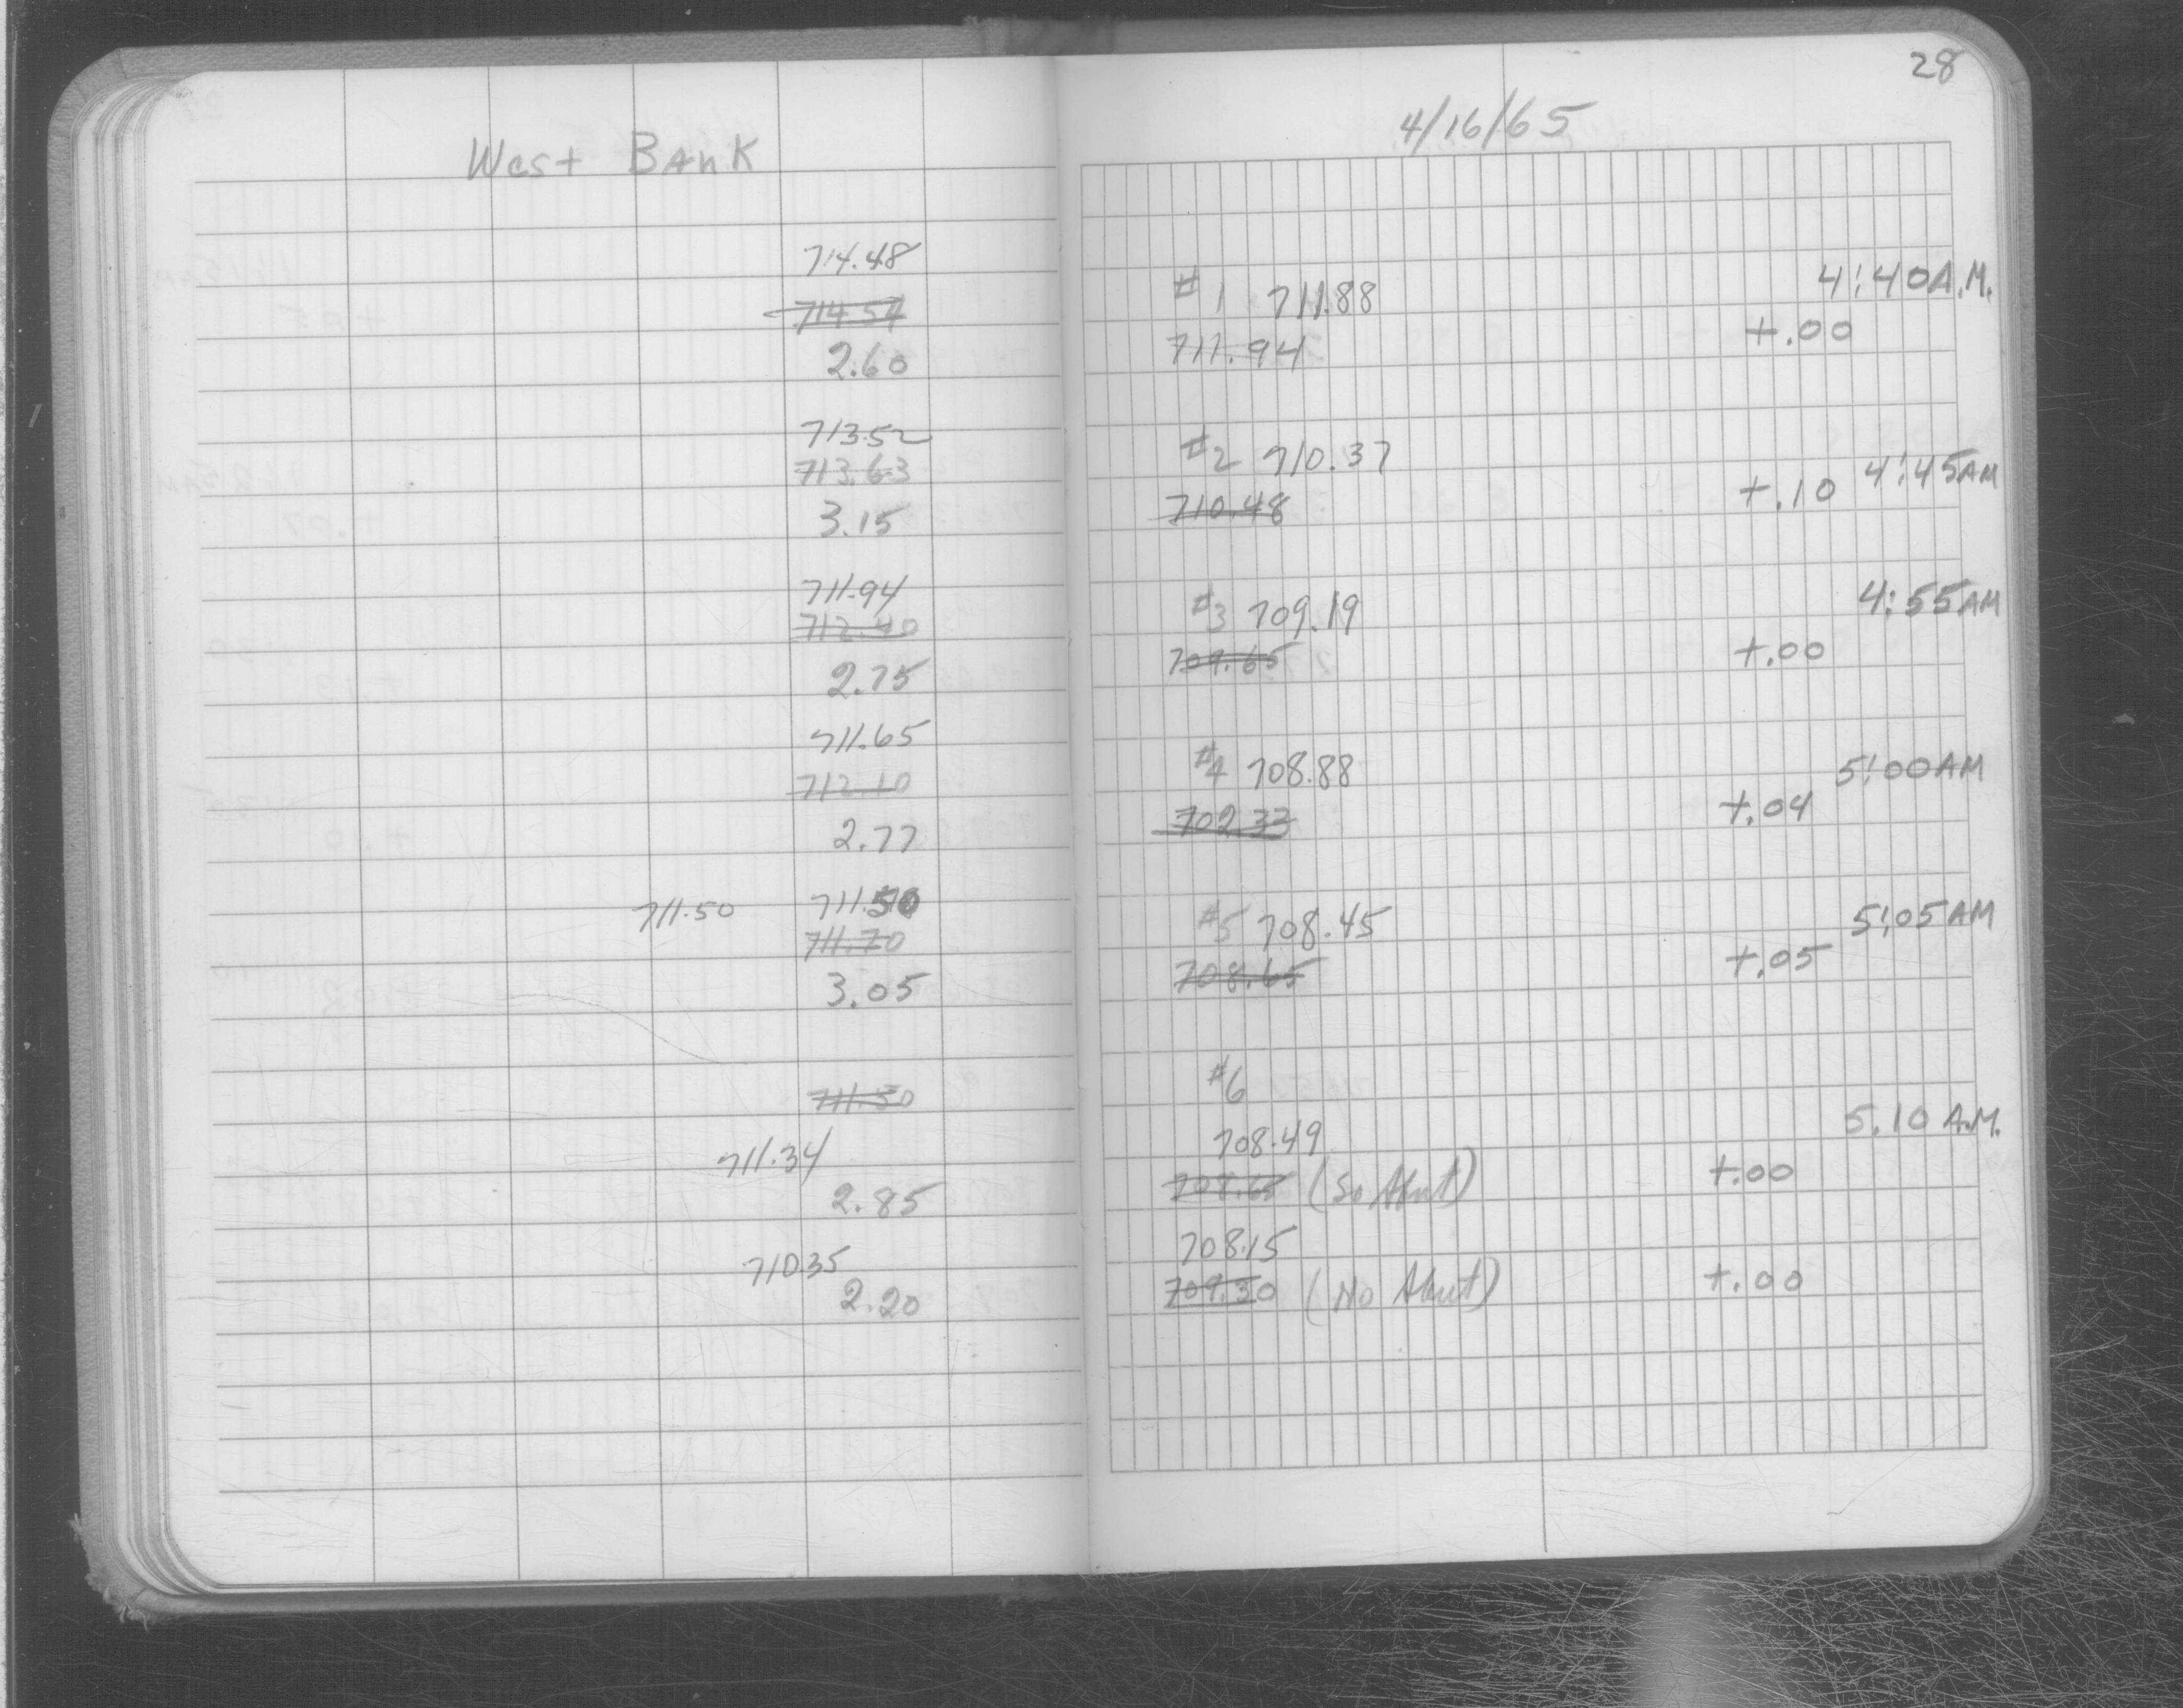 West Bank
714.48
714.54
2.60
713.52
713.63
3.15
711.94
712.40
2.75
711.65
712.10
2.77
711.50 711.50
711.70
3.05
711.50
711.34
2.85
710.35
2.20
28
4/16/65
#1 711.88 4:40 A.M.
711.94 +.00
#2 710.37 4:45 AM
710.48 +.10
#3 709.19 4:55 AM
709.65 +.00
#4 708.88 5:00 AM
709.33 +.04
#5 708.45 5:05 AM
708.65 +.05
#6
708.49 5.10 A.M.
708.65 (So Abut) +.00
708.15
709.30 (No Abut) +.00